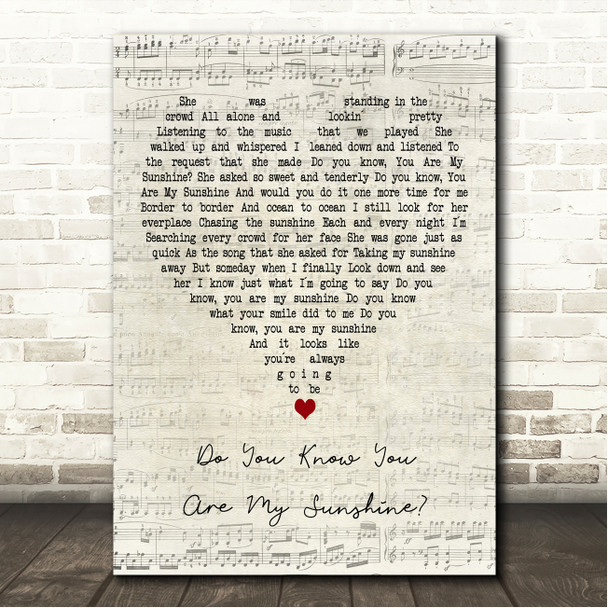 She was standing in the
crowd All alone and lookin' pretty
Listening to the music that we played She
walked up and whispered I leaned down and listened To
the request that she made Do you know, You Are My
Sunshine? She asked so sweet and tenderly Do you know, You
Are My Sunshine And would you do it one more time for me
Border to border And ocean to ocean I still look for her
everplace Chasing the sunshine Each and every night I'm
Searching every crowd for her face She was gone just as
quick As the song that she asked for Taking my sunshine
away But someday when I finally Look down and see
her I know just what I'm going to say Do you
know, you are my sunshine Do you know
what your smile did to me Do you
know, you are my sunshine
And it looks like
you're always
going
to be
Do You Know You
Are My Sunshine?